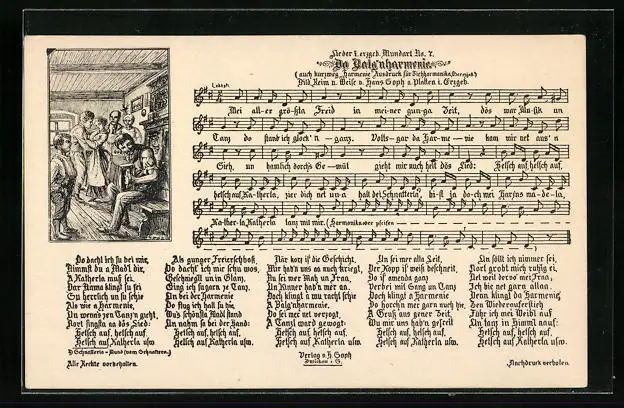 Lieder i. erzgeb. Mundart No. 7.
Da Balg'nharmenie.
(auch kurzweg „Harmenie“ Ausdruck für Ziehharmonika
Bild, Reim u. Weise v. Hans Soph a. Platten i. Erzgeb.
Lebhaft.
Mei all-er größta Freid in mei-ner gun-ga Zeit, dös war Mu-sik un
Tanz do stand ich glock'n - ganz. Volls-gar da Har-me-nie kam mir net aus'n
Sieh, un hamlich dorch's Ge-müt gieht mir noch heit dös Lied: Hetsch auf, hetsch auf,
hetsch auf Katherla, zier dich net un-a halt dei Schnatterla, bi-st ja do-ch mei
Ka-ther-la, Katherla tanz mit mir. (Harmonika oder pfeifen
Do dacht ich su bei mir,
Nimmst du a Mad'l dir,
A Katherla muß sei.
Dar Nama klingt su fei
Su herrlich un su schie
Als wie a Harmenie,
Un wenns zen Tanz'n gieht,
Kort singsta na dös Lied:
Hetsch auf, hetsch auf,
Hetsch auf Katherla usw.
Als gunger Freierschboß,
Do dacht ich mir scha wos,
Geschniegelt un in Glanz,
Ging ich sugarn ze Tanz.
Un bei der Harmenie
Do flog ich hall su hie,
Wu's schönsta Mad'l stand
Un nahm sa bei der Hand:
Hetsch auf, hetsch auf,
Hetsch auf Katherla usw.
När korz is die Geschicht,
Mir hab'n uns aa auch kriegt,
Nu sei mer Mah un Fraa,
Un Kinner hab'n mer aa.
Doch klingt a mu racht schie
A Balg'nharmenie,
Do sei mer net verzogt,
A Tanz'l ward gewogt:
Hetsch auf, hetsch auf,
Hetsch auf Katherla usw.
Un sei mer alla Zeit,
Der Kopp is weiß beschneit,
Do is amenda ganz
Verbei mit Gang un Tanz
Doch klingt a Harmenie
Do horchn mer garn noch hie,
A Gruß aus gener Zeit,
Wu mir uns hab'n gefreit
Hetsch auf, hetsch auf,
Hetsch auf Katherla usw.
Un söllt ich nimmer sei,
Narl grobt mich ruhig ei.
Net weit dervo mei Fraa,
Ich bie net garn allaa.
Denn klingt da Harmenie,
Zen Wiederauferstieh
Führ ich mei Weibl auf
Un tanz in Himml nauf:
Hetsch auf, hetsch auf,
Hetsch auf Katherla usw.
1) Schnatterla = Mund (vom Schnattern.)
Alle Rechte vorbehalten.
Verlag v. H. Soph
Zwickau i. S.
Nachdruck verboten.